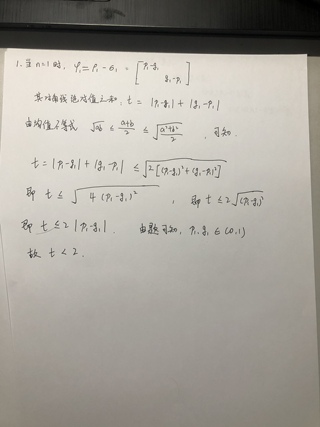 1. 当 n=1 时, φ₁ = ρ₁ - σ₁ = [ p₁-g₁
g₁-p₁ ]
其对角线绝对值之和: t = |p₁-g₁| + |g₁-p₁|
由均值不等式 √ab ≤ (a+b)/2 ≤ √((a²+b²)/2) , 可知.
t = |p₁-g₁| + |g₁-p₁| ≤ √(2[(p₁-g₁)²+(g₁-p₁)²])
即 t ≤ √(4(p₁-g₁)²) , 即 t ≤ 2√(p₁-g₁)²
即 t ≤ 2|p₁-g₁| . 由题可知, p₁,g₁ ∈ (0,1)
故 t < 2.